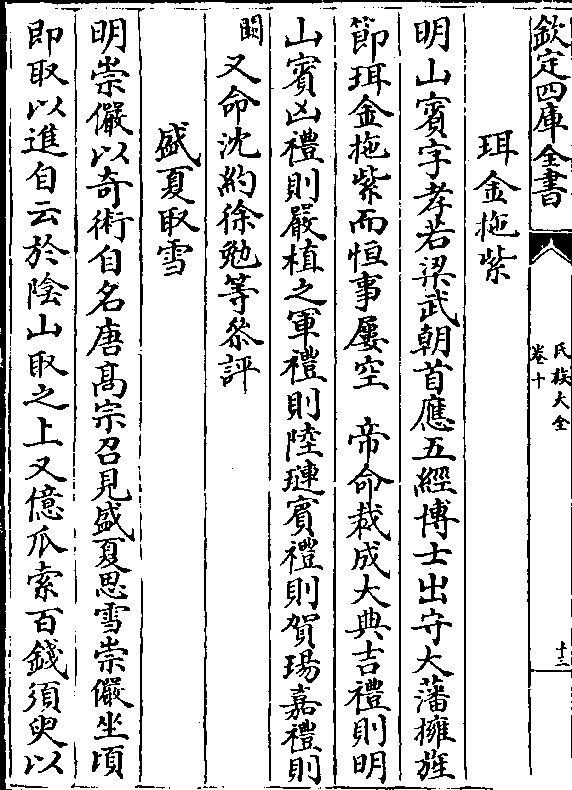 欽定四庫全書
氏族大全
卷十
十三
珥金拖紫
明山賓字孝若梁武朝首應五經博士出守大藩擁旌
節珥金拖紫而恒事屢空　帝命裁成大典吉禮則明
山賓凶禮則嚴植之軍禮則陸璉賓禮則賀瑒嘉禮則
闕又命沈約徐勉等叅評
盛夏取雪
明崇儼以奇術自名唐髙宗召見盛夏思雪崇儼坐頃
即取以進自云於陰山取之上又億瓜索百錢須臾以